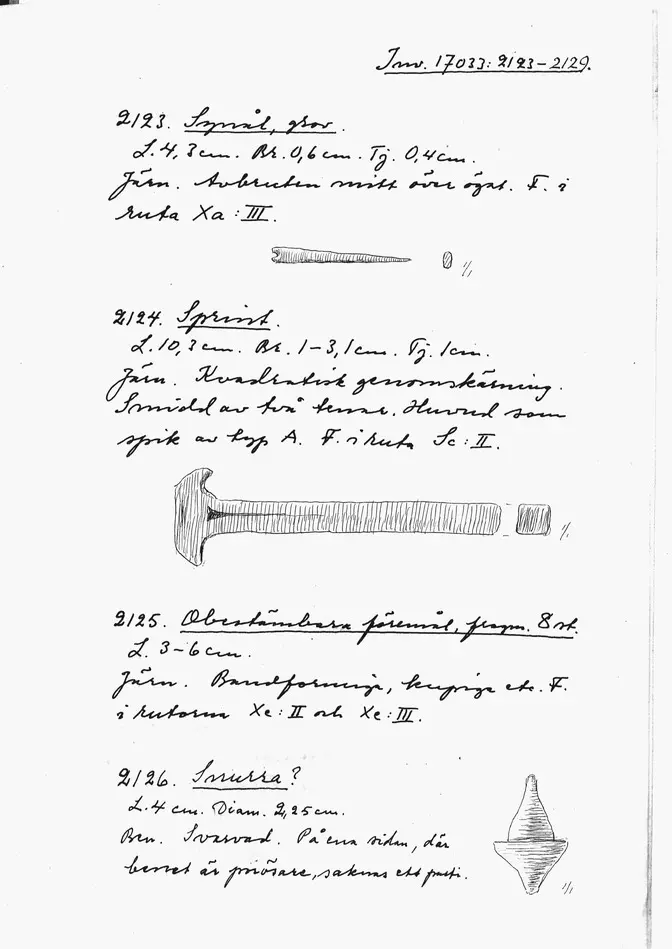 Inv. 17033: 2123-2129.
2123. Synål, grov.
L. 4,3 cm. Br. 0,6 cm. Tj. 0,4 cm.
Järn. Avbruten mitt över ögat. F. i
ruta Xa: III.
1/1
2124. Sprint.
L. 10,3 cm. Br. 1-3,1 cm. Tj. 1 cm.
Järn. Kvadratisk genomskärning.
Smidd av två tenar. Huvud som
spik av typ A. F. i ruta Sc: II.
1/1
2125. Obestämbara föremål, fragm. 8 st.
L. 3-6 cm.
Järn. Bandformiga, kupiga etc. F.
i rutorna Xe: II och Xe: III.
2126. Snurra?
L. 4 cm. Diam. 2,25 cm.
Ben. Svarvad. På ena sidan, där
benet är pori̇ösare, saknas ett parti.
1/1